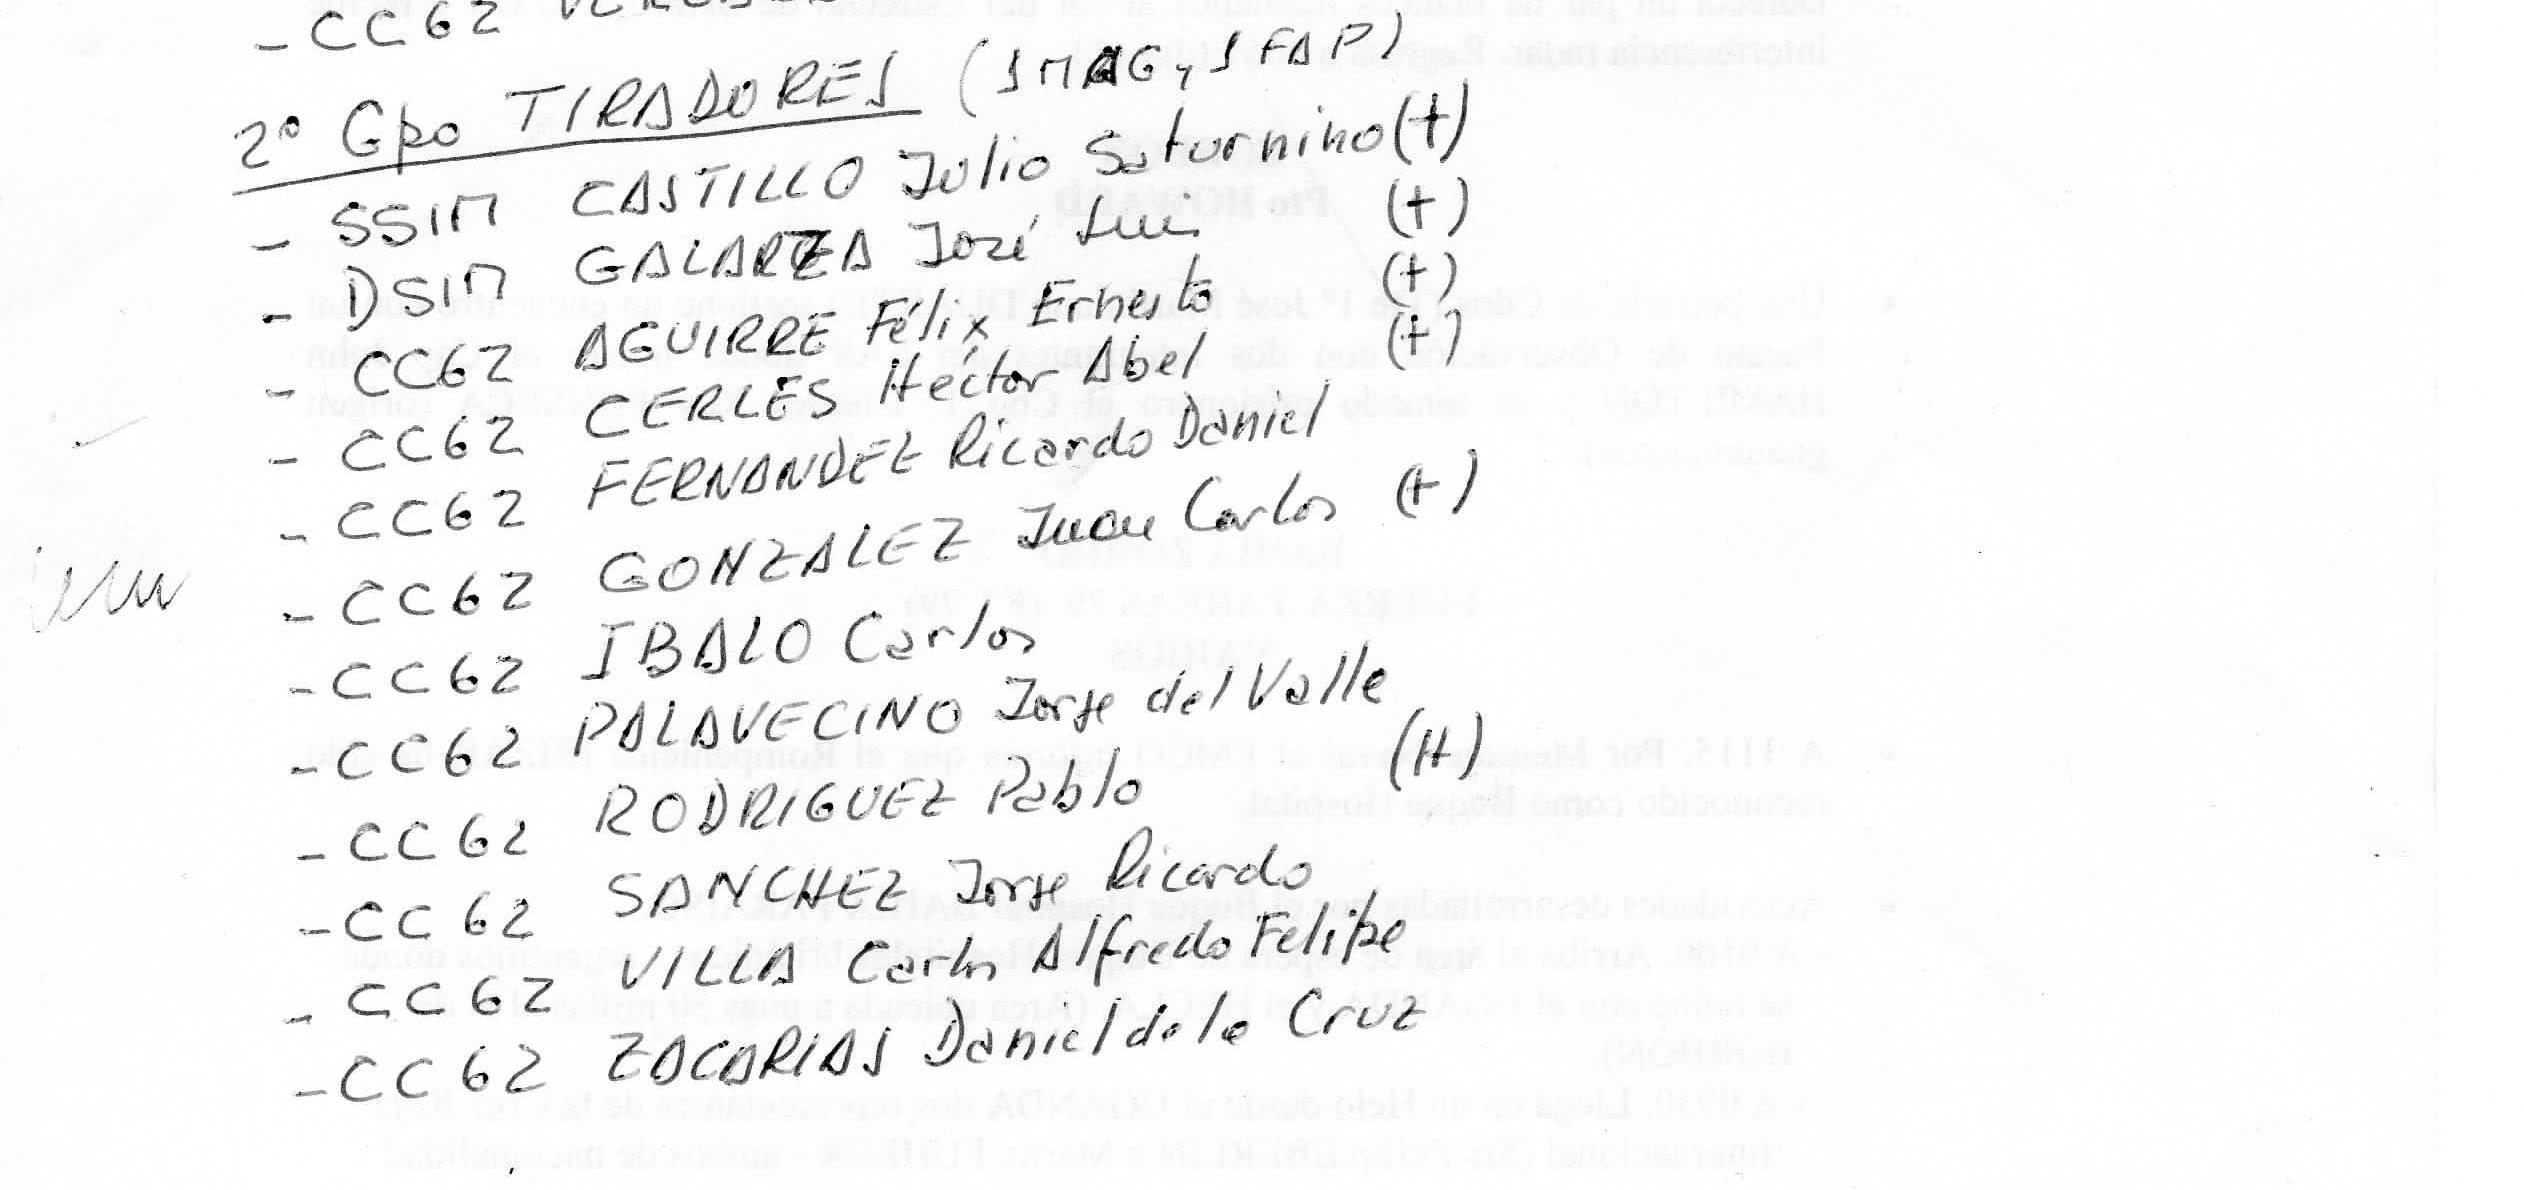 - CC62
2º Gpo TIRADORES (1 MAG, 1 FAP)
- SSIM CASTILLO Julio Saturnino (+)
- DSIM GALARZA José Luis (+)
- CC62 AGUIRRE Félix Ernesto (+)
- CC62 CERLES Hector Abel (+)
- CC62 FERNANDEZ Ricardo Daniel
- CC62 GONZALEZ Juan Carlos (+)
- CC62 IBALO Carlos
- CC62 PALAVECINO Jorge del Valle
- CC62 RODRIGUEZ Pablo (H)
- CC62 SANCHEZ Jorge Ricardo
- CC62 VILLA Carlos Alfredo Felipe
- CC62 ZACARIAS Daniel de la Cruz